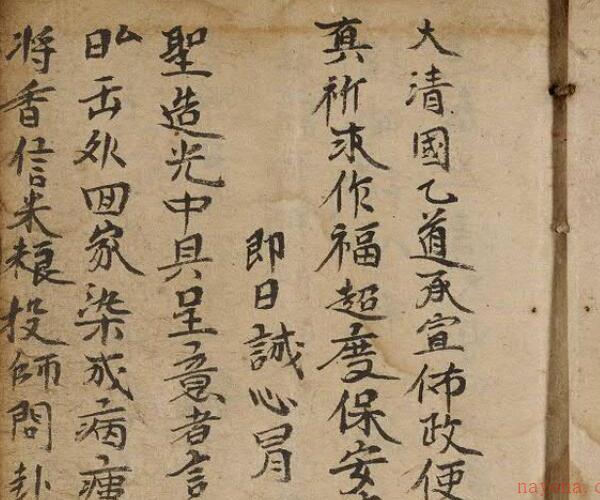 大清國乙道承宣佈政便
真祈求作福超度保安
即日誠心冒
聖造光中具呈意者言
日厶缶外回家染成病瘇
将香信米粮投師問卦
nayona.c